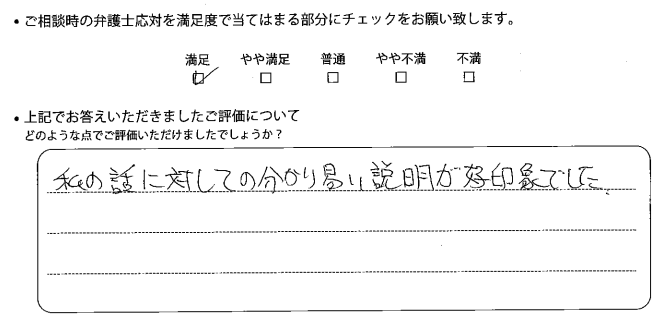 ・ご相談時の弁護士応対を満足度で当てはまる部分にチェックをお願い致します。
満足 やや満足 普通 やや不満 不満
・上記でお答えいただきましたご評価について
どのような点でご評価いただけましたでしょうか？
私の話に対しての分かり易い説明が好印象でした。